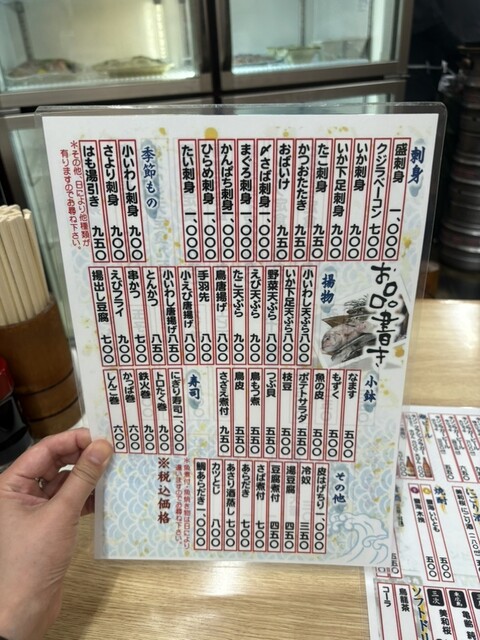 お品書き
刺身
盛刺身 一、〇〇〇
クジラベーコン 七〇〇
いか刺身 九〇〇
いか下足刺身 九〇〇
たこ刺身 九〇〇
かつおたたき 九五〇
おばいけ 九五〇
〆さば刺身 一、〇〇〇
まぐろ刺身 一、〇〇〇
かんぱち刺身 一、〇〇〇
ひらめ刺身 一、〇〇〇
たい刺身 一、〇〇〇
季節もの
小いわし刺身 九〇〇
さより刺身 九〇〇
はも湯引き 九五〇
※その他、日により他種類が
有りますのでお尋ね下さい。
揚物
小いわし天ぷら 八〇〇
いか下足天ぷら 八〇〇
野菜天ぷら 八〇〇
えび天ぷら 九〇〇
たこ天ぷら 九五〇
手羽先 八〇〇
鳥唐揚げ 八〇〇
小えび唐揚げ 八〇〇
小いわし唐揚げ 八五〇
とんかつ 八五〇
串かつ 七〇〇
えびフライ 九〇〇
揚出し豆腐 七〇〇
小鉢
なます 五〇〇
もずく 五〇〇
魚の皮 五〇〇
ポテトサラダ 五五〇
枝豆 五〇〇
つぶ貝
鳥もつ煮
鳥皮 五五〇
さざえ煮付 九五〇
寿司
にぎり寿司 一、〇〇〇
トロたく巻 九〇〇
鉄火巻 九〇〇
かっぱ巻 六〇〇
しんこ巻 六〇〇
その他
皮はぎちり 一、〇〇〇
冷奴 三五〇
湯豆腐 四五〇
豆腐煮付 四五〇
さば煮付 七〇〇
あらだき 七〇〇
あさり酒蒸し 七〇〇
カツとじ 八〇〇
鯛あらだき 一、〇〇〇
※税込価格
焼酎
ソフトドリ
烏龍茶
コーラ
美和桜